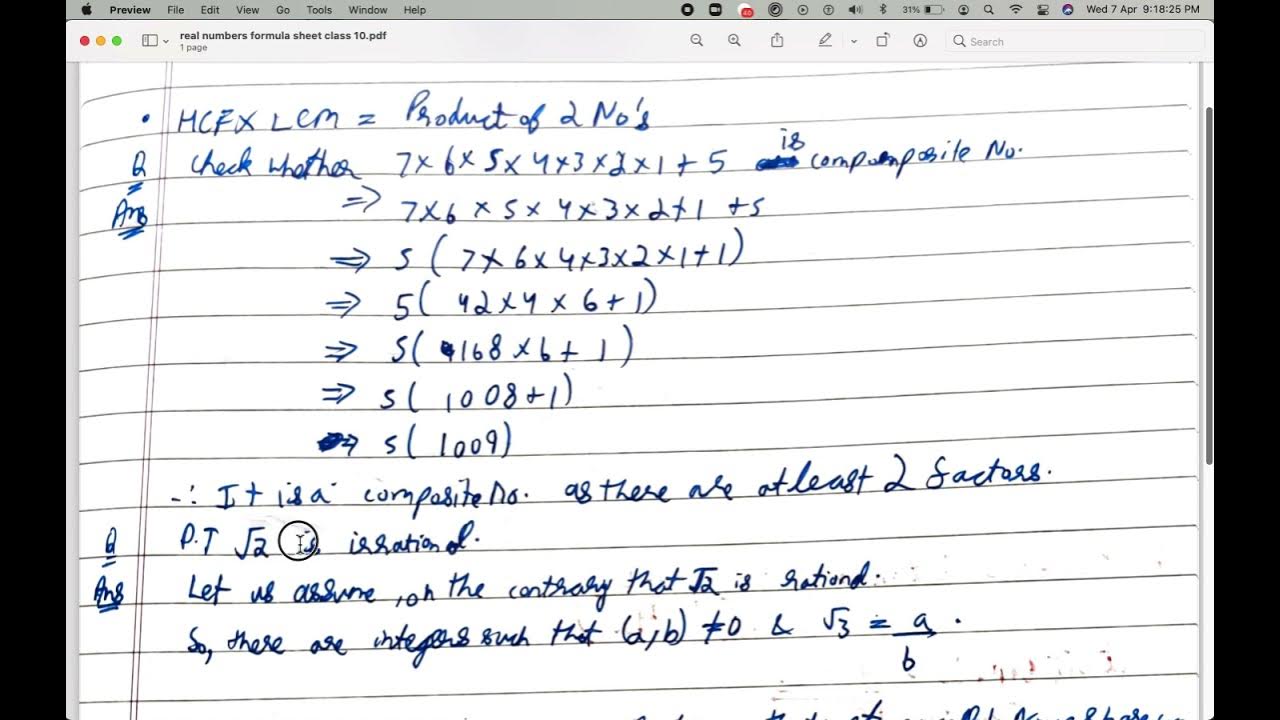 Preview File Edit View Go Tools Window Help 31% Wed 7 Apr 9:18:25 PM
real numbers formula sheet class 10.pdf
1 page
Search
• HCF × LCM = Product of 2 No's
Q Check whether 7×6×5×4×3×2×1+5 is compomposite No.
Ans ⇒ 7×6×5×4×3×2×1 +5
⇒ 5(7×6×4×3×2×1+1)
⇒ 5(42×4×6+1)
⇒ 5(168×6+1)
⇒ 5(1008+1)
⇒ 5(1009)
∴ It is a composite No. as there are atleast 2 factors.
Q P.T √2 is irrational.
Ans Let us assume, on the contrary that √2 is rational.
So, there are integers such that (a,b) ≠0 & √3 = a/b.